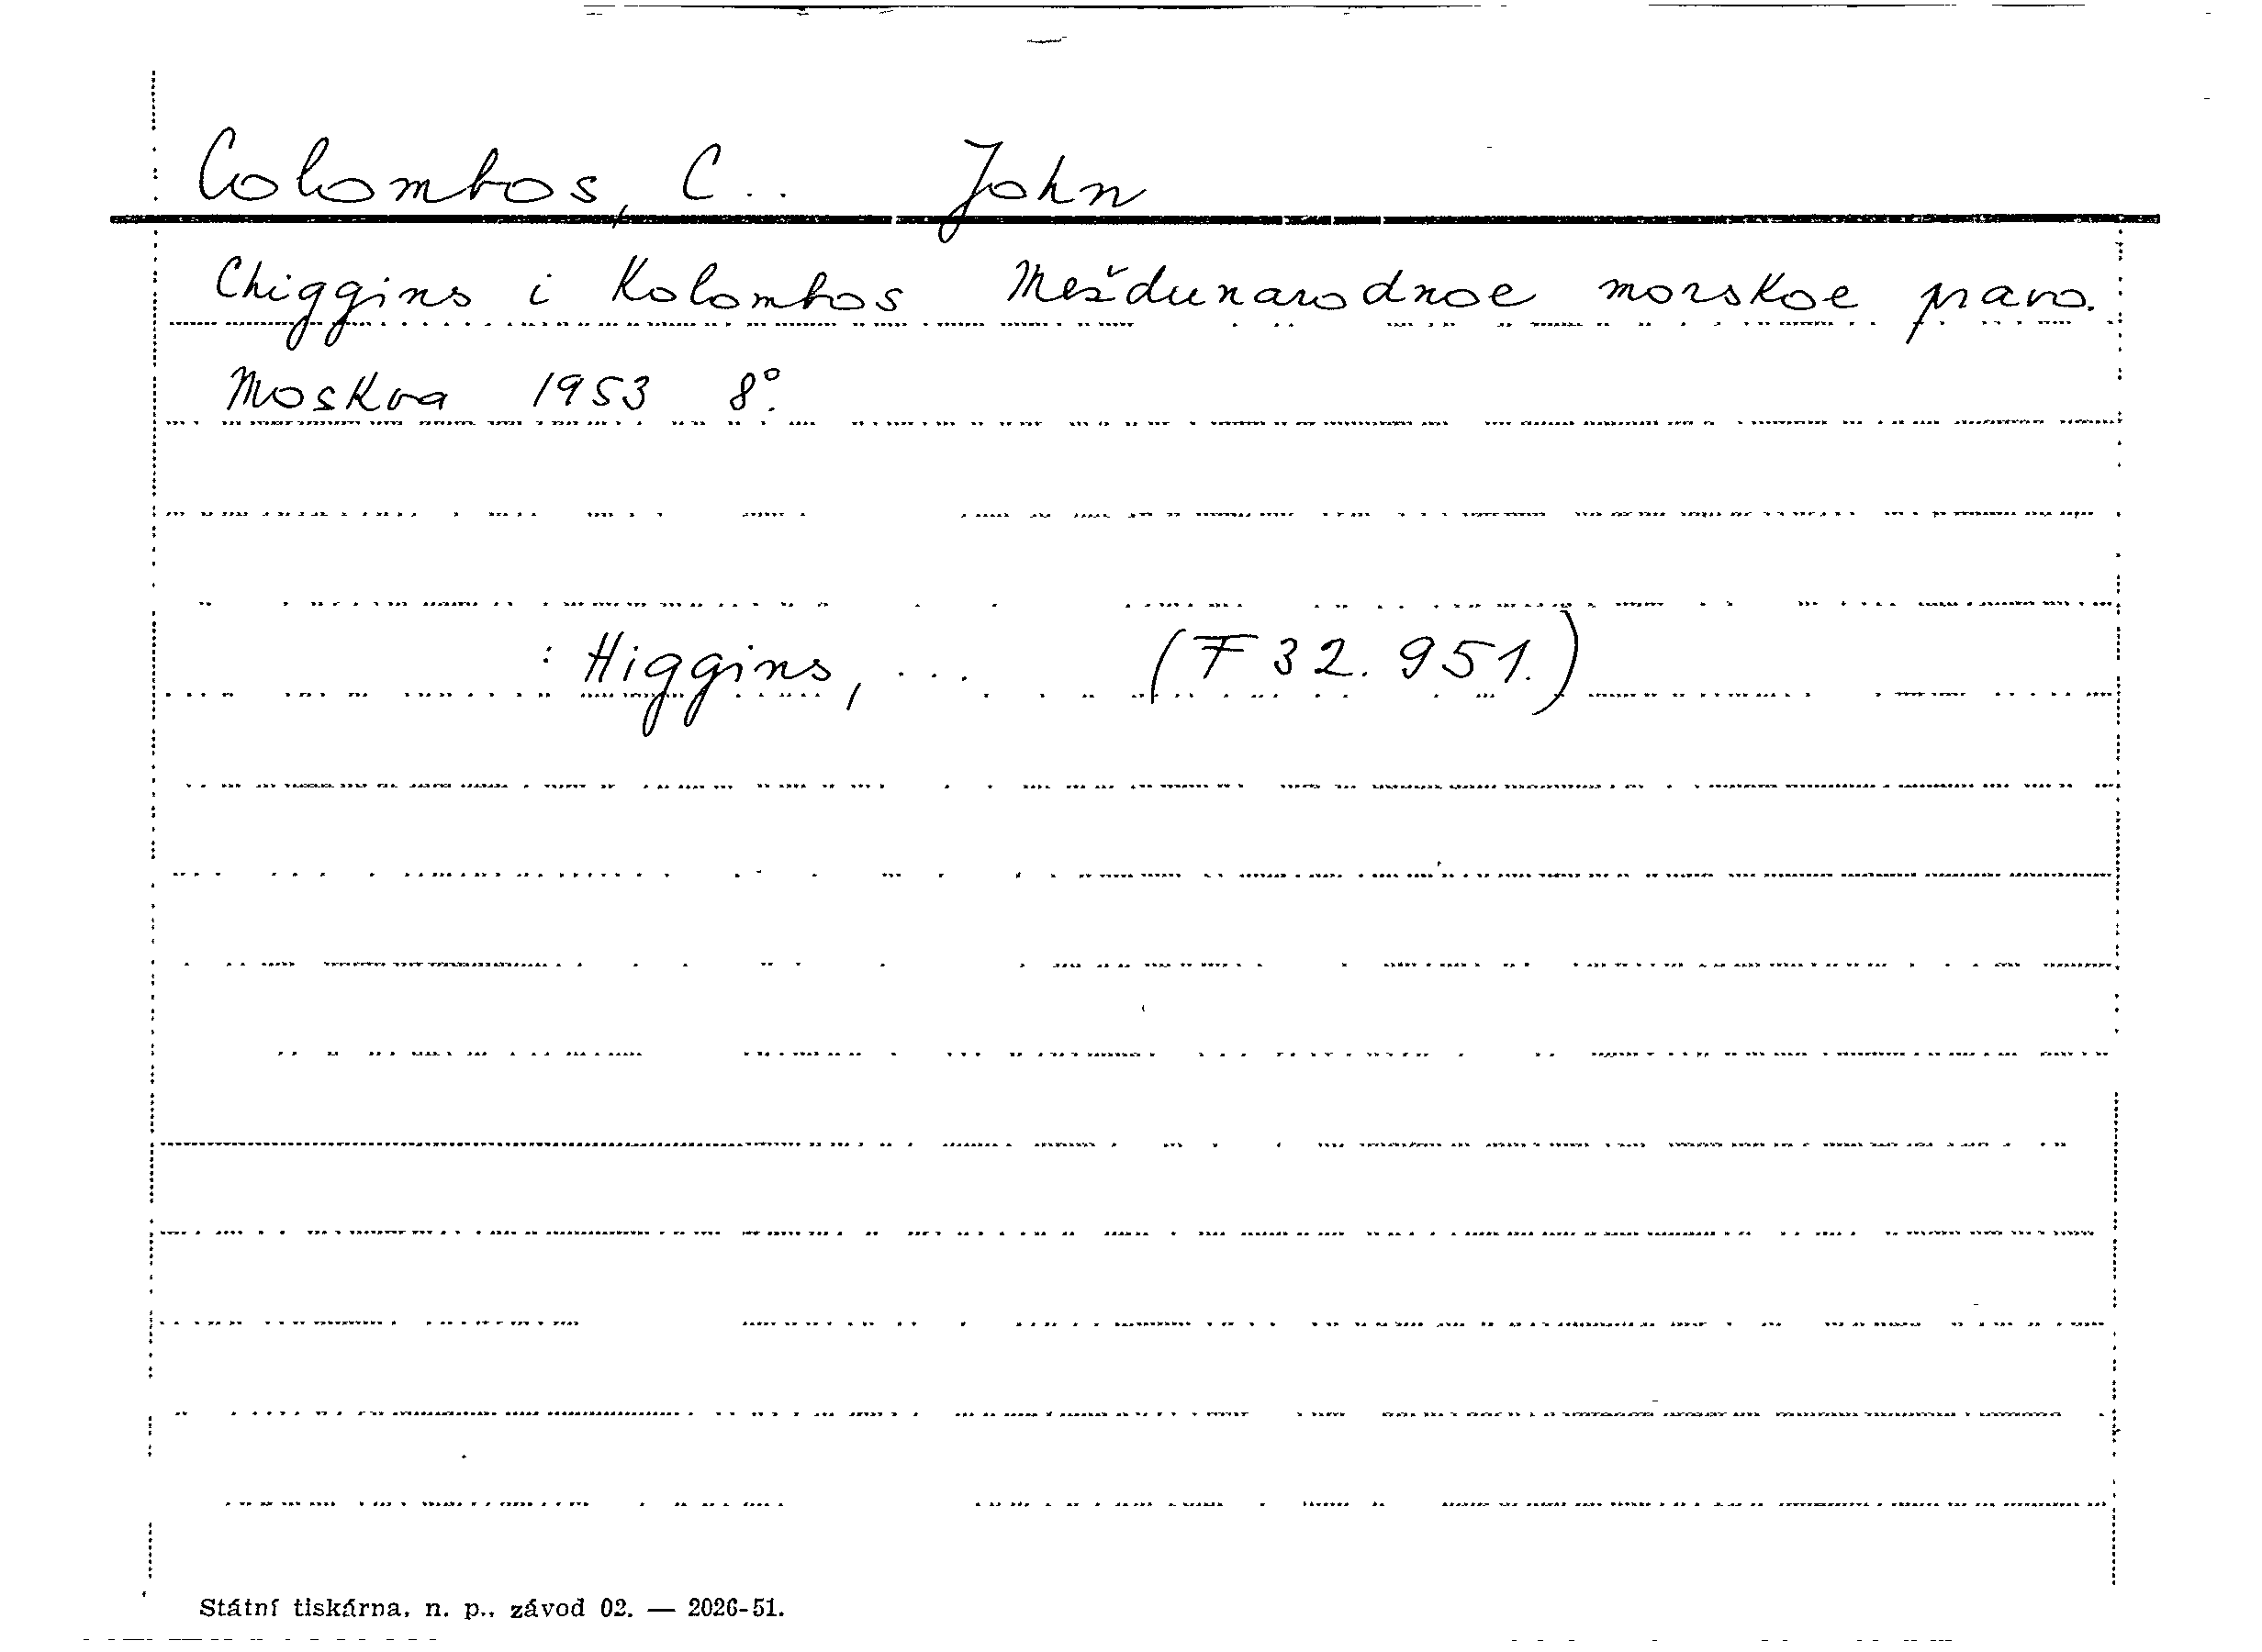 Colombos, C.. John
Chiggins i Kolombos Meždunarodnoe morskoe pravo.
Moskva 1953 8°.
: Higgins, ... (F 32.951.)
Státní tiskárna, n. p., závod 02. — 2026-51.